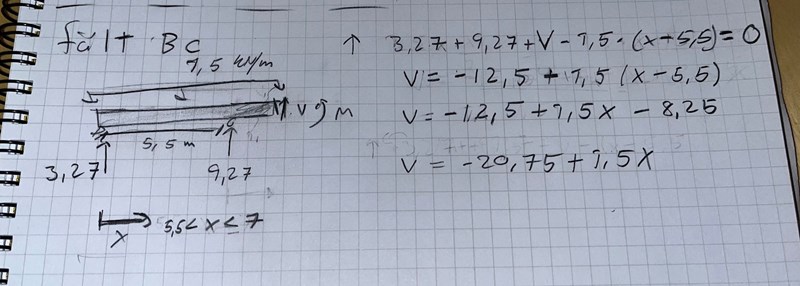 fält BC
1,5 kN/m
V M
5,5 m
3,27 9,27
x 5,5 < x < 7
↑ 3,27 + 9,27 + V - 1,5 · (x - 5,5) = 0
V = -12,5 + 1,5 (x - 5,5)
V = -12,5 + 1,5x - 8,25
V = -20,75 + 1,5x